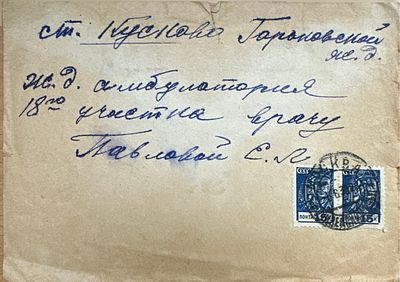 ст. Кусково Горьковской
ж.д.
ж.д. амбулатория
18го участка врачу
Павловой Е. Л.
СССР
ПОЧТА
МОСКВА